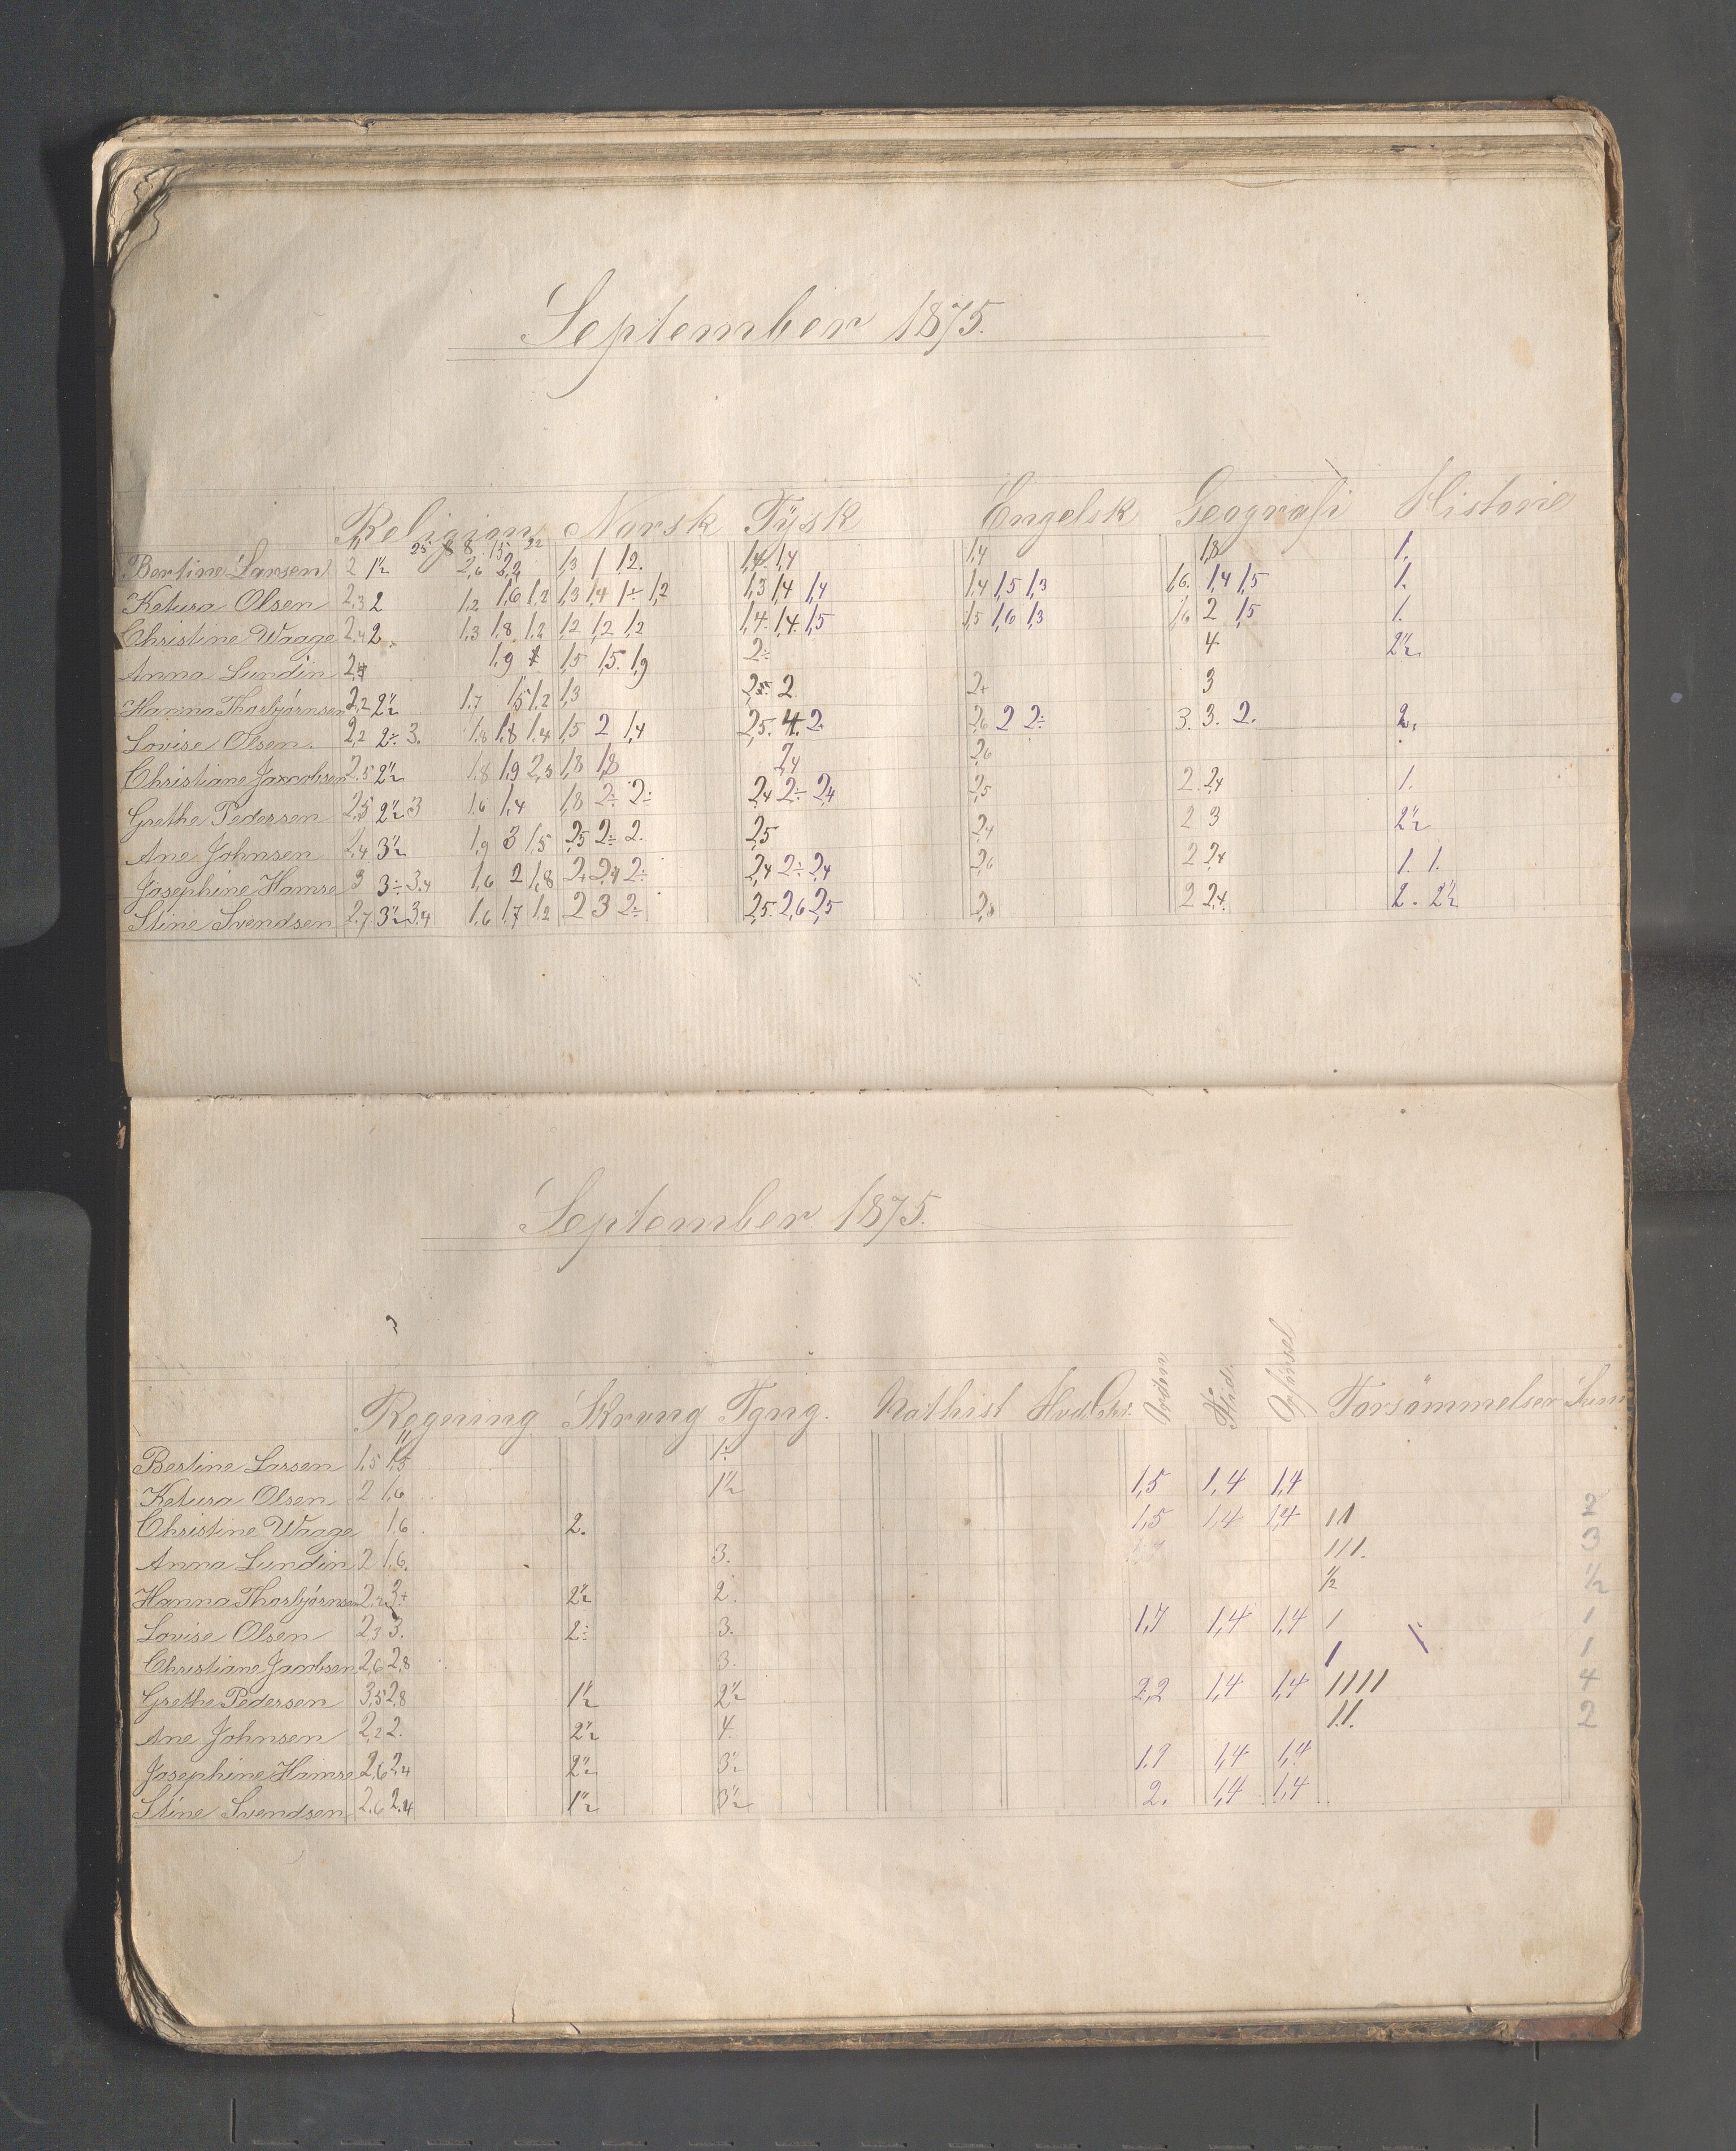 September 1875.
Religion Norsk Tysk Engelsk Geografi Historie
Bertine Larsen 2 1½ 2,6 2,2 1,3 1 1,2. 1,4. 1,4 1,4 1,8 1.
Ketura Olsen 2,3 2 1,2 1,6 1,2 1,3 1,4 1÷ 1,2 1,3 1,4 1,4 1,4 1,5 1,3 1,6. 1,4 1,5 1.
Christine Waage 2,4 2. 1,3 1,8 1,2 1,2 1,2 1,2 1,4. 1,4. 1,5 1,5 1,6 1,3 1,6 2 1,5 1.
Anna Lundin 1,9 1,5 1,5. 1,9 2÷ 4 2½.
Hanna Thorbjørnsen 2,2 2½ 1,7 1,5 1,2 1,3 2 2+ 3
Lovise Olsen. 2,2 2÷ 3. 1,8 1,8 1,4 1,5 2 1,4 2,5. 4. 2. 2,6 2 2÷ 3. 3. 2. 2.
Christiane Jacobsen 2,5 2½ 1,8 1,9 2,3 1,8 1,8 2,4 2,6
Grethe Pedersen 2,5 2½ 3 1,6 1,4 1,8 2÷ 2÷ 2,4 2÷ 2,4 2,5 2. 2,4 1.
Ane Johnsen 2,4 3½ 1,9 3 1,5 2,5 2÷ 2. 2,5 2,4 2 3 2½
Josephine Hamre 3 3÷ 3,4 1,6 2 1,8 2+ 2,4 2÷ 2,4 2÷ 2,4 2,6 2 2,4 1. 1.
Stine Svendsen 2,7 3½ 3,4 1,6 1,7 1,2 2 3 2÷ 2,5. 2,6 2,5 2 2,4. 2. 2½
September 1875.
Regning Skrvng Tgng. Nathist Hvd Orden Flid. Opførsel Forsømmelser Sum
Bertine Larsen 1,5 1,5 1÷
Ketura Olsen 2 1,6 1½ 1,5 1,4 1,4
Christine Waage 1,6. 2. 1,5 1,4 1,4 11 2
Anna Lundin 2 1,6. 3. 111. 3
Hanna Thorbjørnsen 3+ 2½ 2. ½ ½
Lovise Olsen 2,3 3. 2÷ 3. 1,7 1,4 1,4 1 1
Christiane Jacobsen 2,6 2,8 3. 1 1
Grethe Pedersen 3,5 2,8 1½ 2½ 2,2 1,4 1,4 1111 4
Ane Johnsen 2,2 2. 2½ 4. 11. 2
Josephine Hamre 2,6 2,4 2½ 3½ 1.9 1,4 1,4
Stine Svendsen 2.6 2.4 1½ 3½ 2. 1,4 1,4